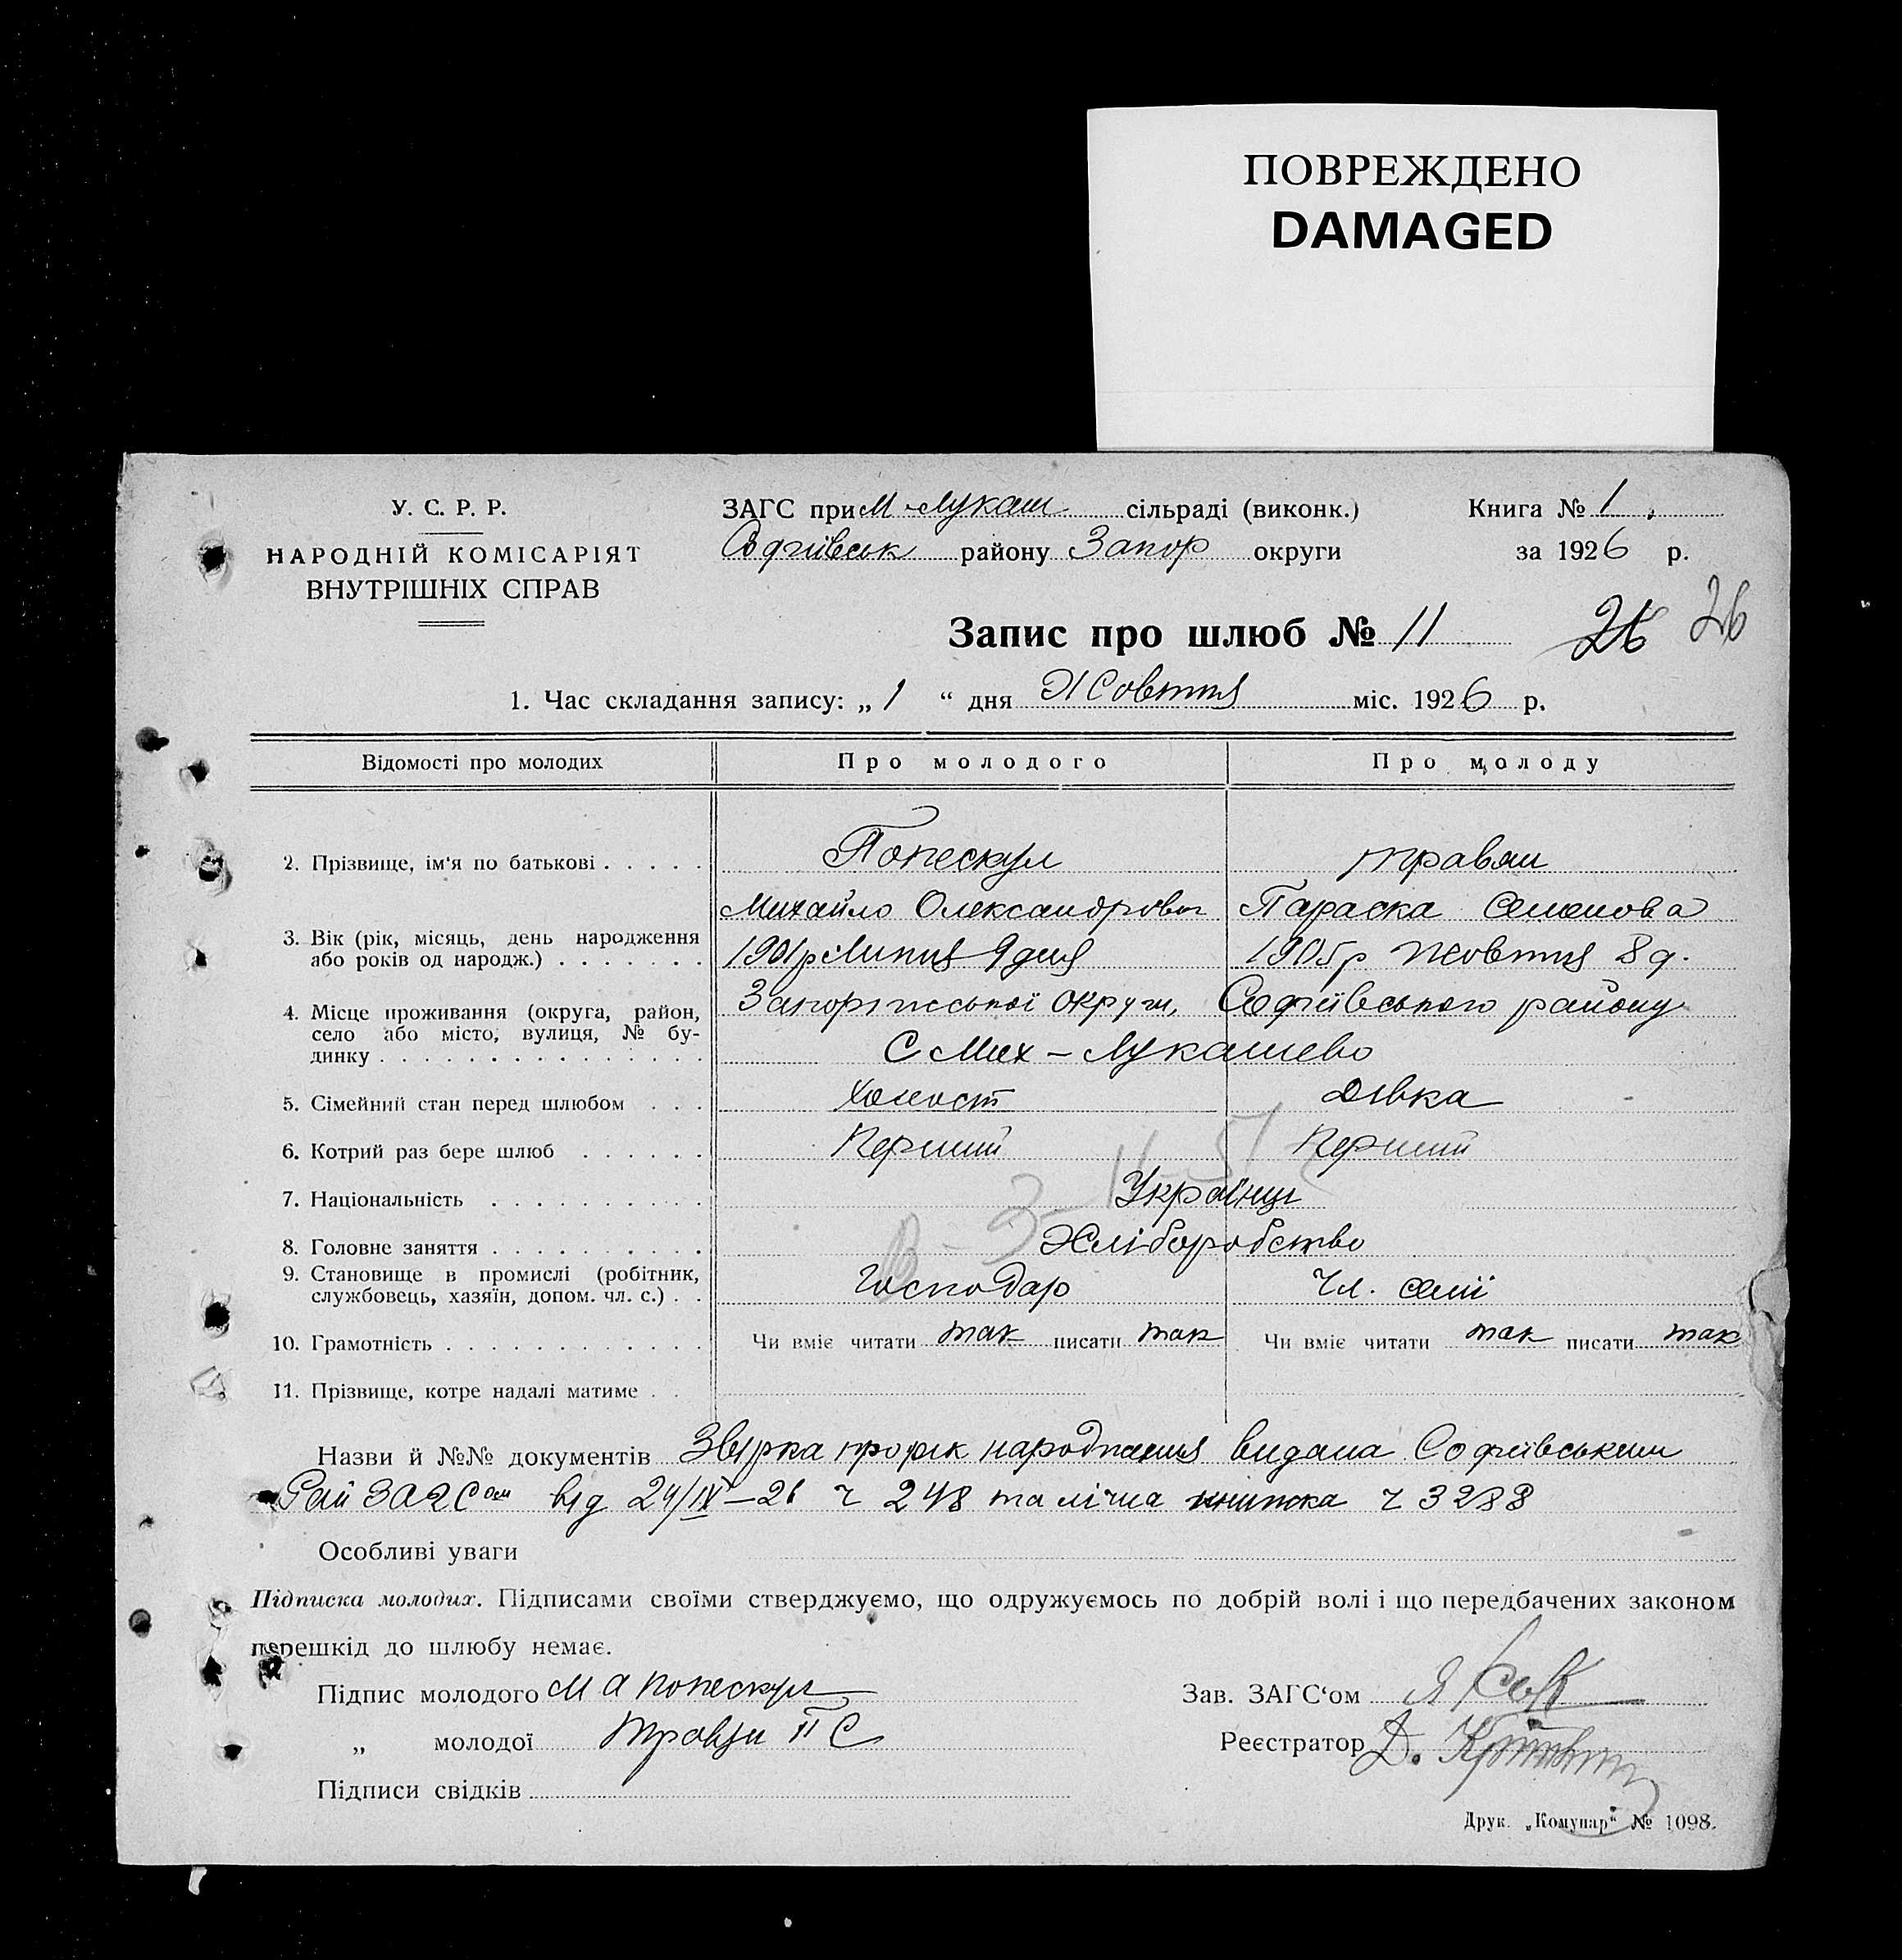 ПОВРЕЖДЕНО
DAMAGED
У. С. Р. Р.
НАРОДНІЙ КОМІСАРІЯТ
ВНУТРІШНІХ СПРАВ
ЗАГС при М-Лукаш сільраді (виконк.)
Софиівськ району Запор округи
Книга № 1
за 1926 р.
Запис про шлюб № 11
26 26
1. Час складання запису: „ 1 “ дня Жовтня міс. 1926 р.
Відомості про молодих Про молодого Про молоду
2. Прізвище, ім'я по батькові . . . . . Попескул
Михайло Олександрович Параска Семенова
3. Вік (рік, місяць, день народження
або років од народж.) . . . . . . . 1901р Липня 9 дня 1905р Жовтня 8 д.
4. Місце проживання (округа, район, Запоріжської округи, Софиівського району
село або місто, вулиця, № бу-
динку . . . . . . . . . . . . . . . С Мих-Лукашево
5. Сімейний стан перед шлюбом . . . Холост Дівка
6. Котрий раз бере шлюб . . . . . . Перший Перший
7. Національність . . . . . . . . . . Українці
8. Головне заняття . . . . . . . . . . Хліборобство
9. Становище в промислі (робітник,
службовець, хазяїн, допом. чл. с.) . . Господар Чл. семії
10. Грамотність . . . . . . . . . . . . Чи вміє читати так писати так Чи вміє читати так писати так
11. Прізвище, котре надалі матиме . .
Назви й №№ документів Звірка про рік народження видана Софиівським
Рай ЗАГСом від 24/IV-26 ч 248 та лічна книжка ч 3288
Особливі уваги
Підписка молодих. Підписами своїми стверджуємо, що одружуємось по добрій волі і що передбачених законом
перешкід до шлюбу немає.
Підпис молодого М А Попескул
„ молодої П С
Підписи свідків
Зав. ЗАГС‘ом
Реєстратор Д.
Друк. „Комунар“ № 1098.